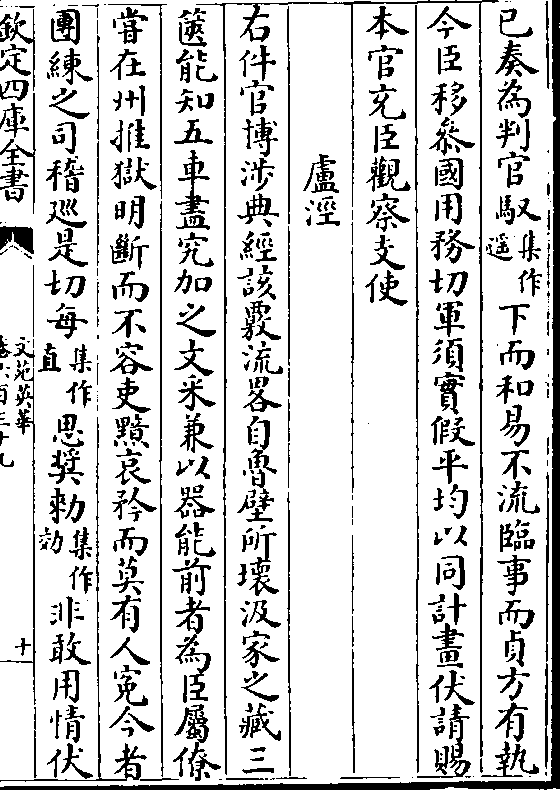 已奏為判官馭集作馬遥下而和易不流臨事而貞方有執
今臣移叅國用務切軍須實假平均以同計畫伏請賜
本官充臣觀察支使
盧涇
右件官博涉典經該覈流畧自魯壁所壞汲冢之藏三
篋能知五車盡究加之文米兼以器能前者為臣屬僚
嘗在州推獄明斷而不容吏黷哀矜而莫有人寃今者
團練之司稽廵是切每集作直思奨勑集作効非敢用情伏
欽定四庫全書
文苑英華
卷六百三十九
十